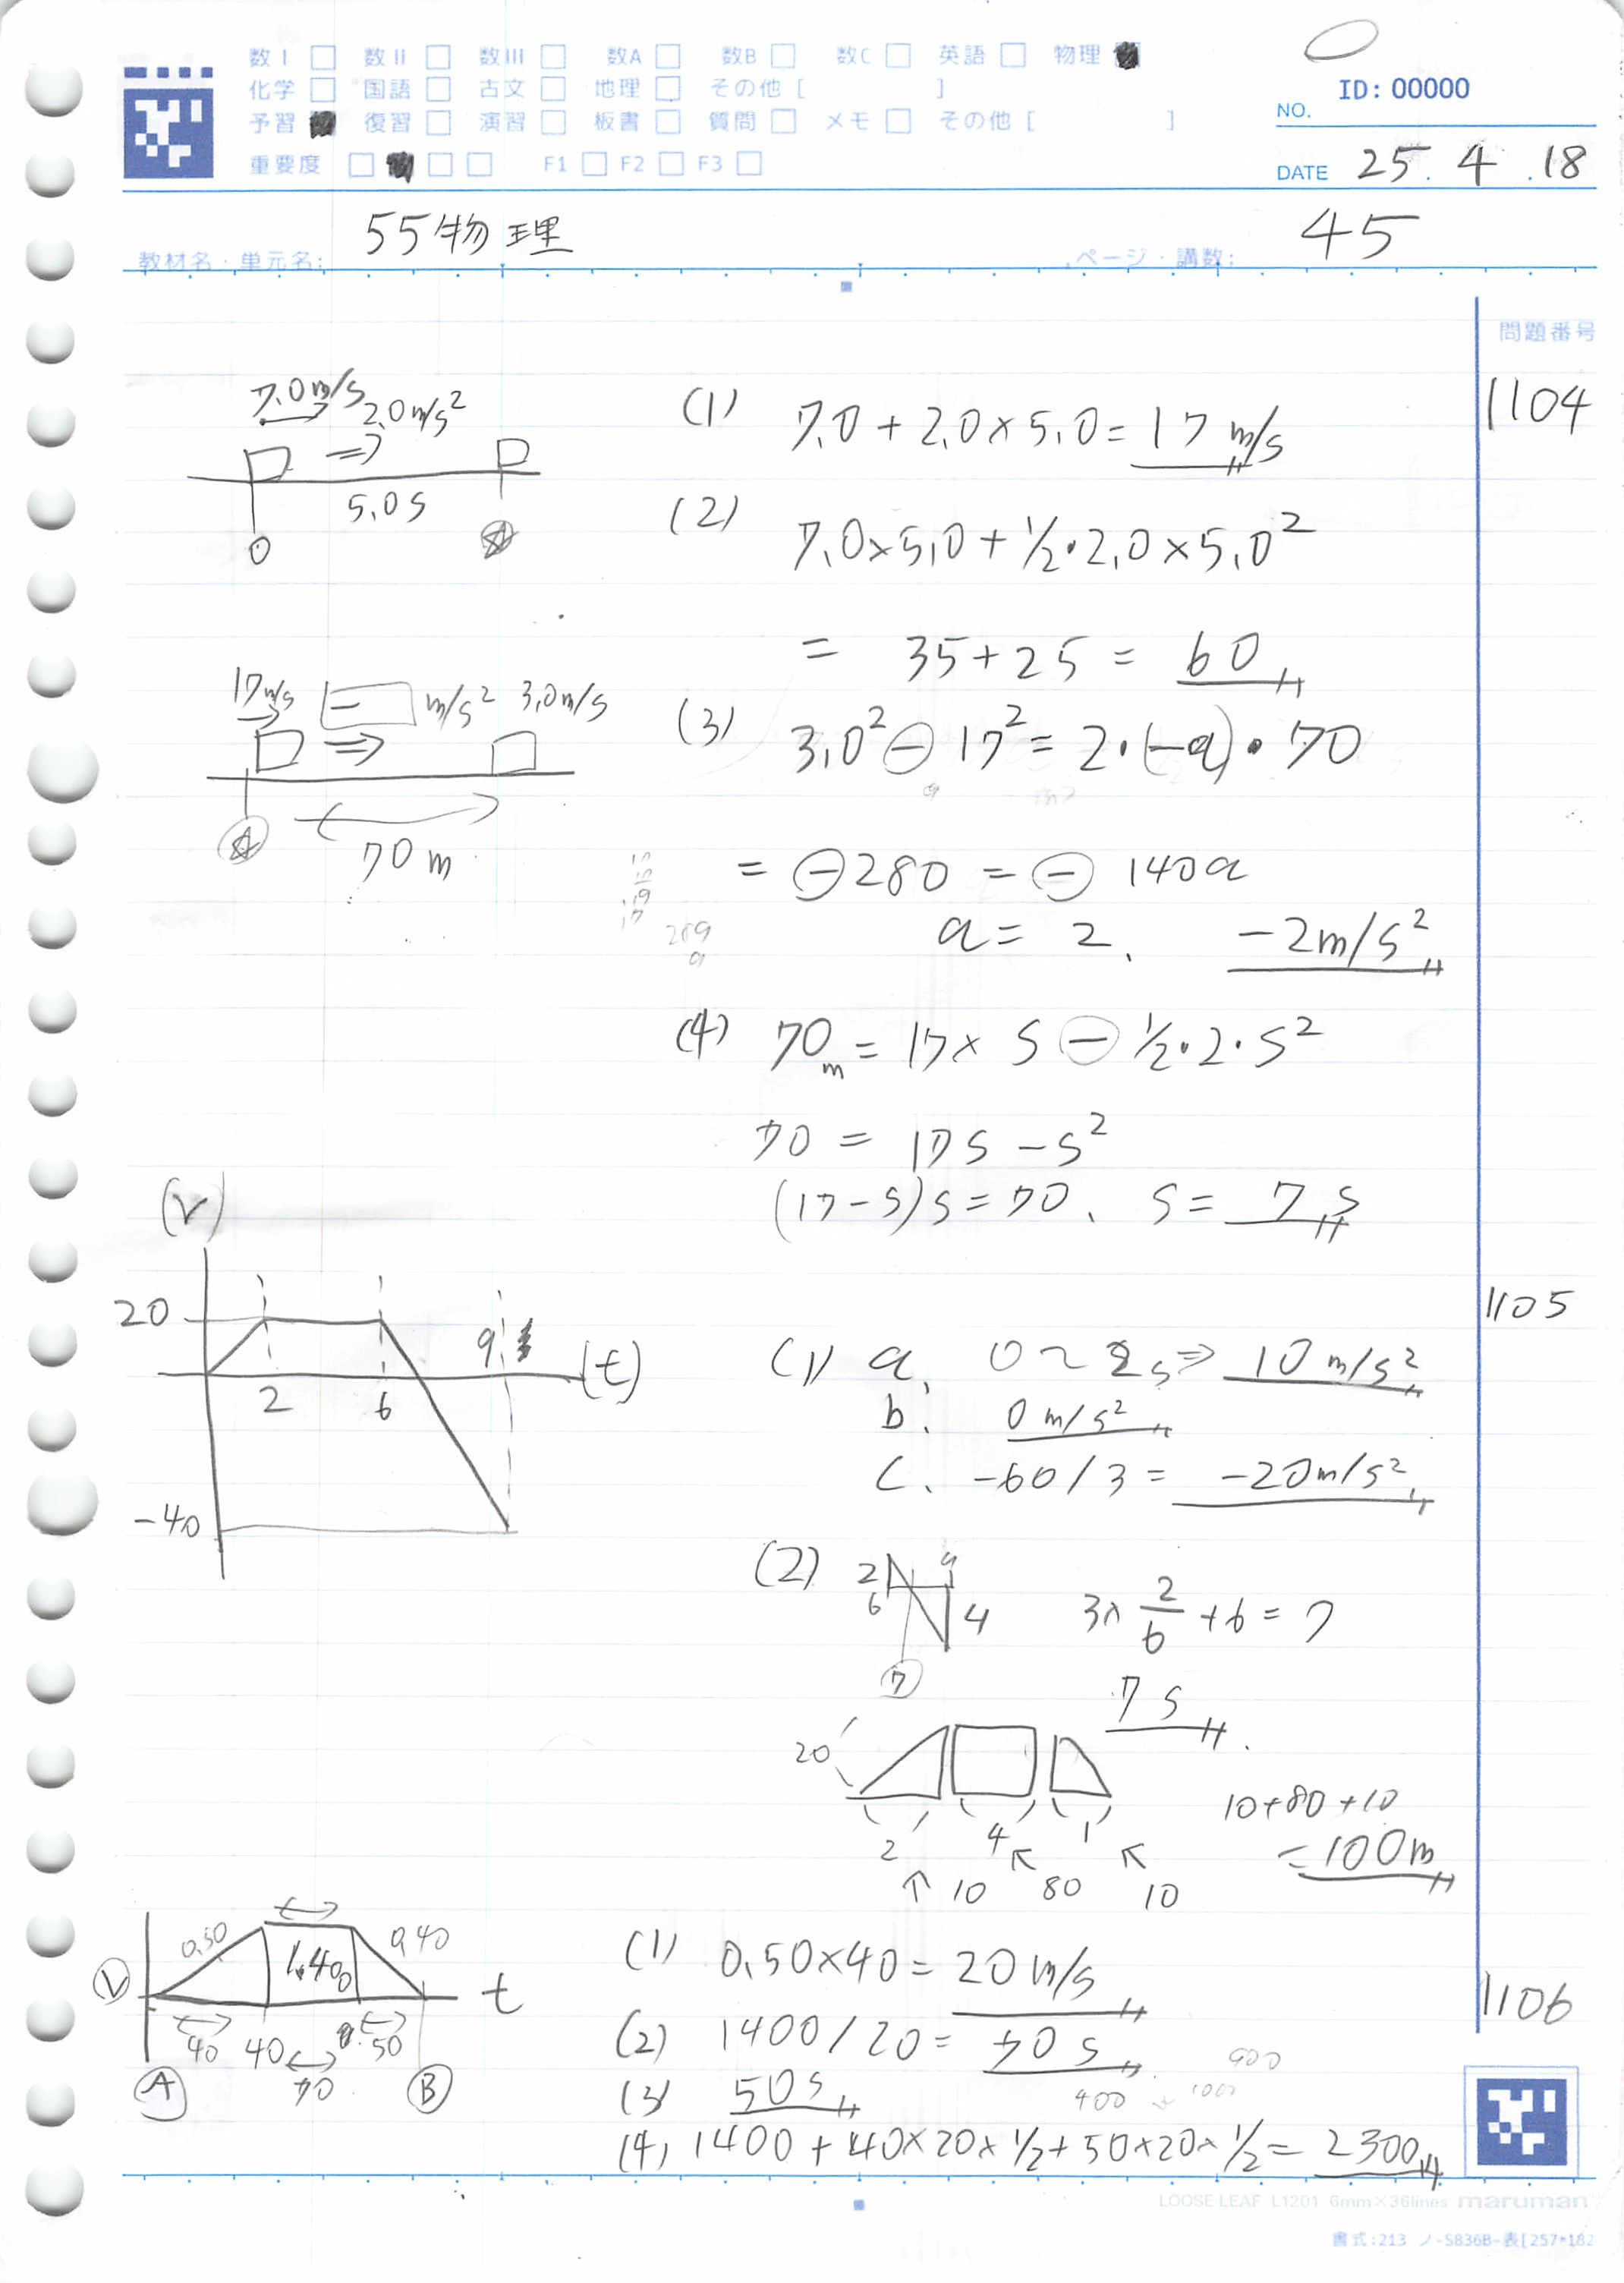 数Ⅰ 数Ⅱ 数Ⅲ 数A 数B 数C 英語 物理
化学 国語 古文 地理 その他 [ ]
予習 復習 演習 板書 質問 メモ その他 [ ]
重要度 F1 F2 F3
ID: 00000
NO.
DATE 25. 4 .18
教材名・単元名: 55物理
ページ・講数: 45
問題番号
1104
7.0m/s 2.0m/s²
5.0s
0
(1) 7.0 + 2.0×5.0 = 17 m/s
(2) 7.0×5.0 + 1/2・2.0×5.0²
= 35+25 = 60
17m/s − m/s² 3.0m/s
70m
(3) 3.0² − 17² = 2・(−a)・70
= −280 = − 140a
a = 2. −2m/s²
289
9
(4) 70m = 17× s − 1/2・2・s²
70 = 17s − s²
(17−s)s = 70. s = 7s
1105
(v)
20
2 6 9 (t)
−40
(1) a. 0〜2s⇒ 10m/s²
b. 0m/s²
c. −60/3 = −20m/s²
(2) 2 6 9 4 7
3× 2/6 +6 = 7
7s
20
2 4 1
↑ 10 80 10
10+80+10
= 100m
1106
V 0.50 1400 0.40 t
40 40 70 50
A B
(1) 0.50×40 = 20m/s
(2) 1400/20 = 70s
(3) 50s
400 1000 900
(4) 1400 + 40×20×1/2 + 50×20×1/2 = 2300
LOOSE LEAF L1201 6mm×36lines maruman
書式:213 ノ-S836B-表[257*182